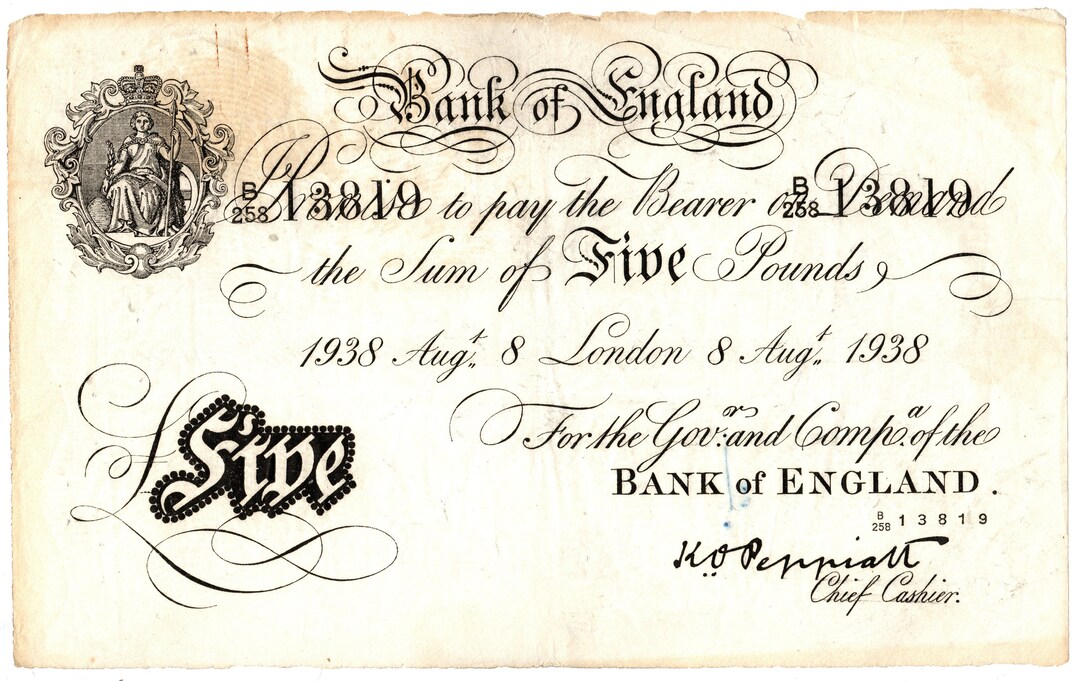 Bank of England
I Promise to pay the Bearer on Demand
B 258 13819 B 258 13819
the Sum of Five Pounds
1938 Augt. 8 London 8 Augt. 1938
For the Govr: and Compa. of the
BANK of ENGLAND.
Five
B 258 13819
K.O. Peppiatt
Chief Cashier.